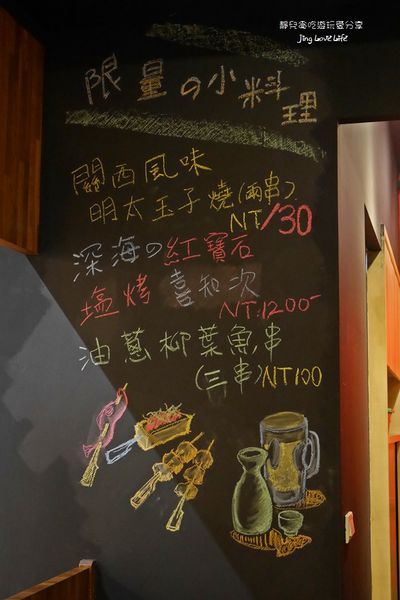 靜兒貪吃遊玩愛分享
Jing Love Life
限量の小料理
關西風味
明太玉子燒(兩串)
NT/30
深海の紅寶石
塩烤 喜知次
NT:1200-
油蔥柳葉魚串
(三串)NT100